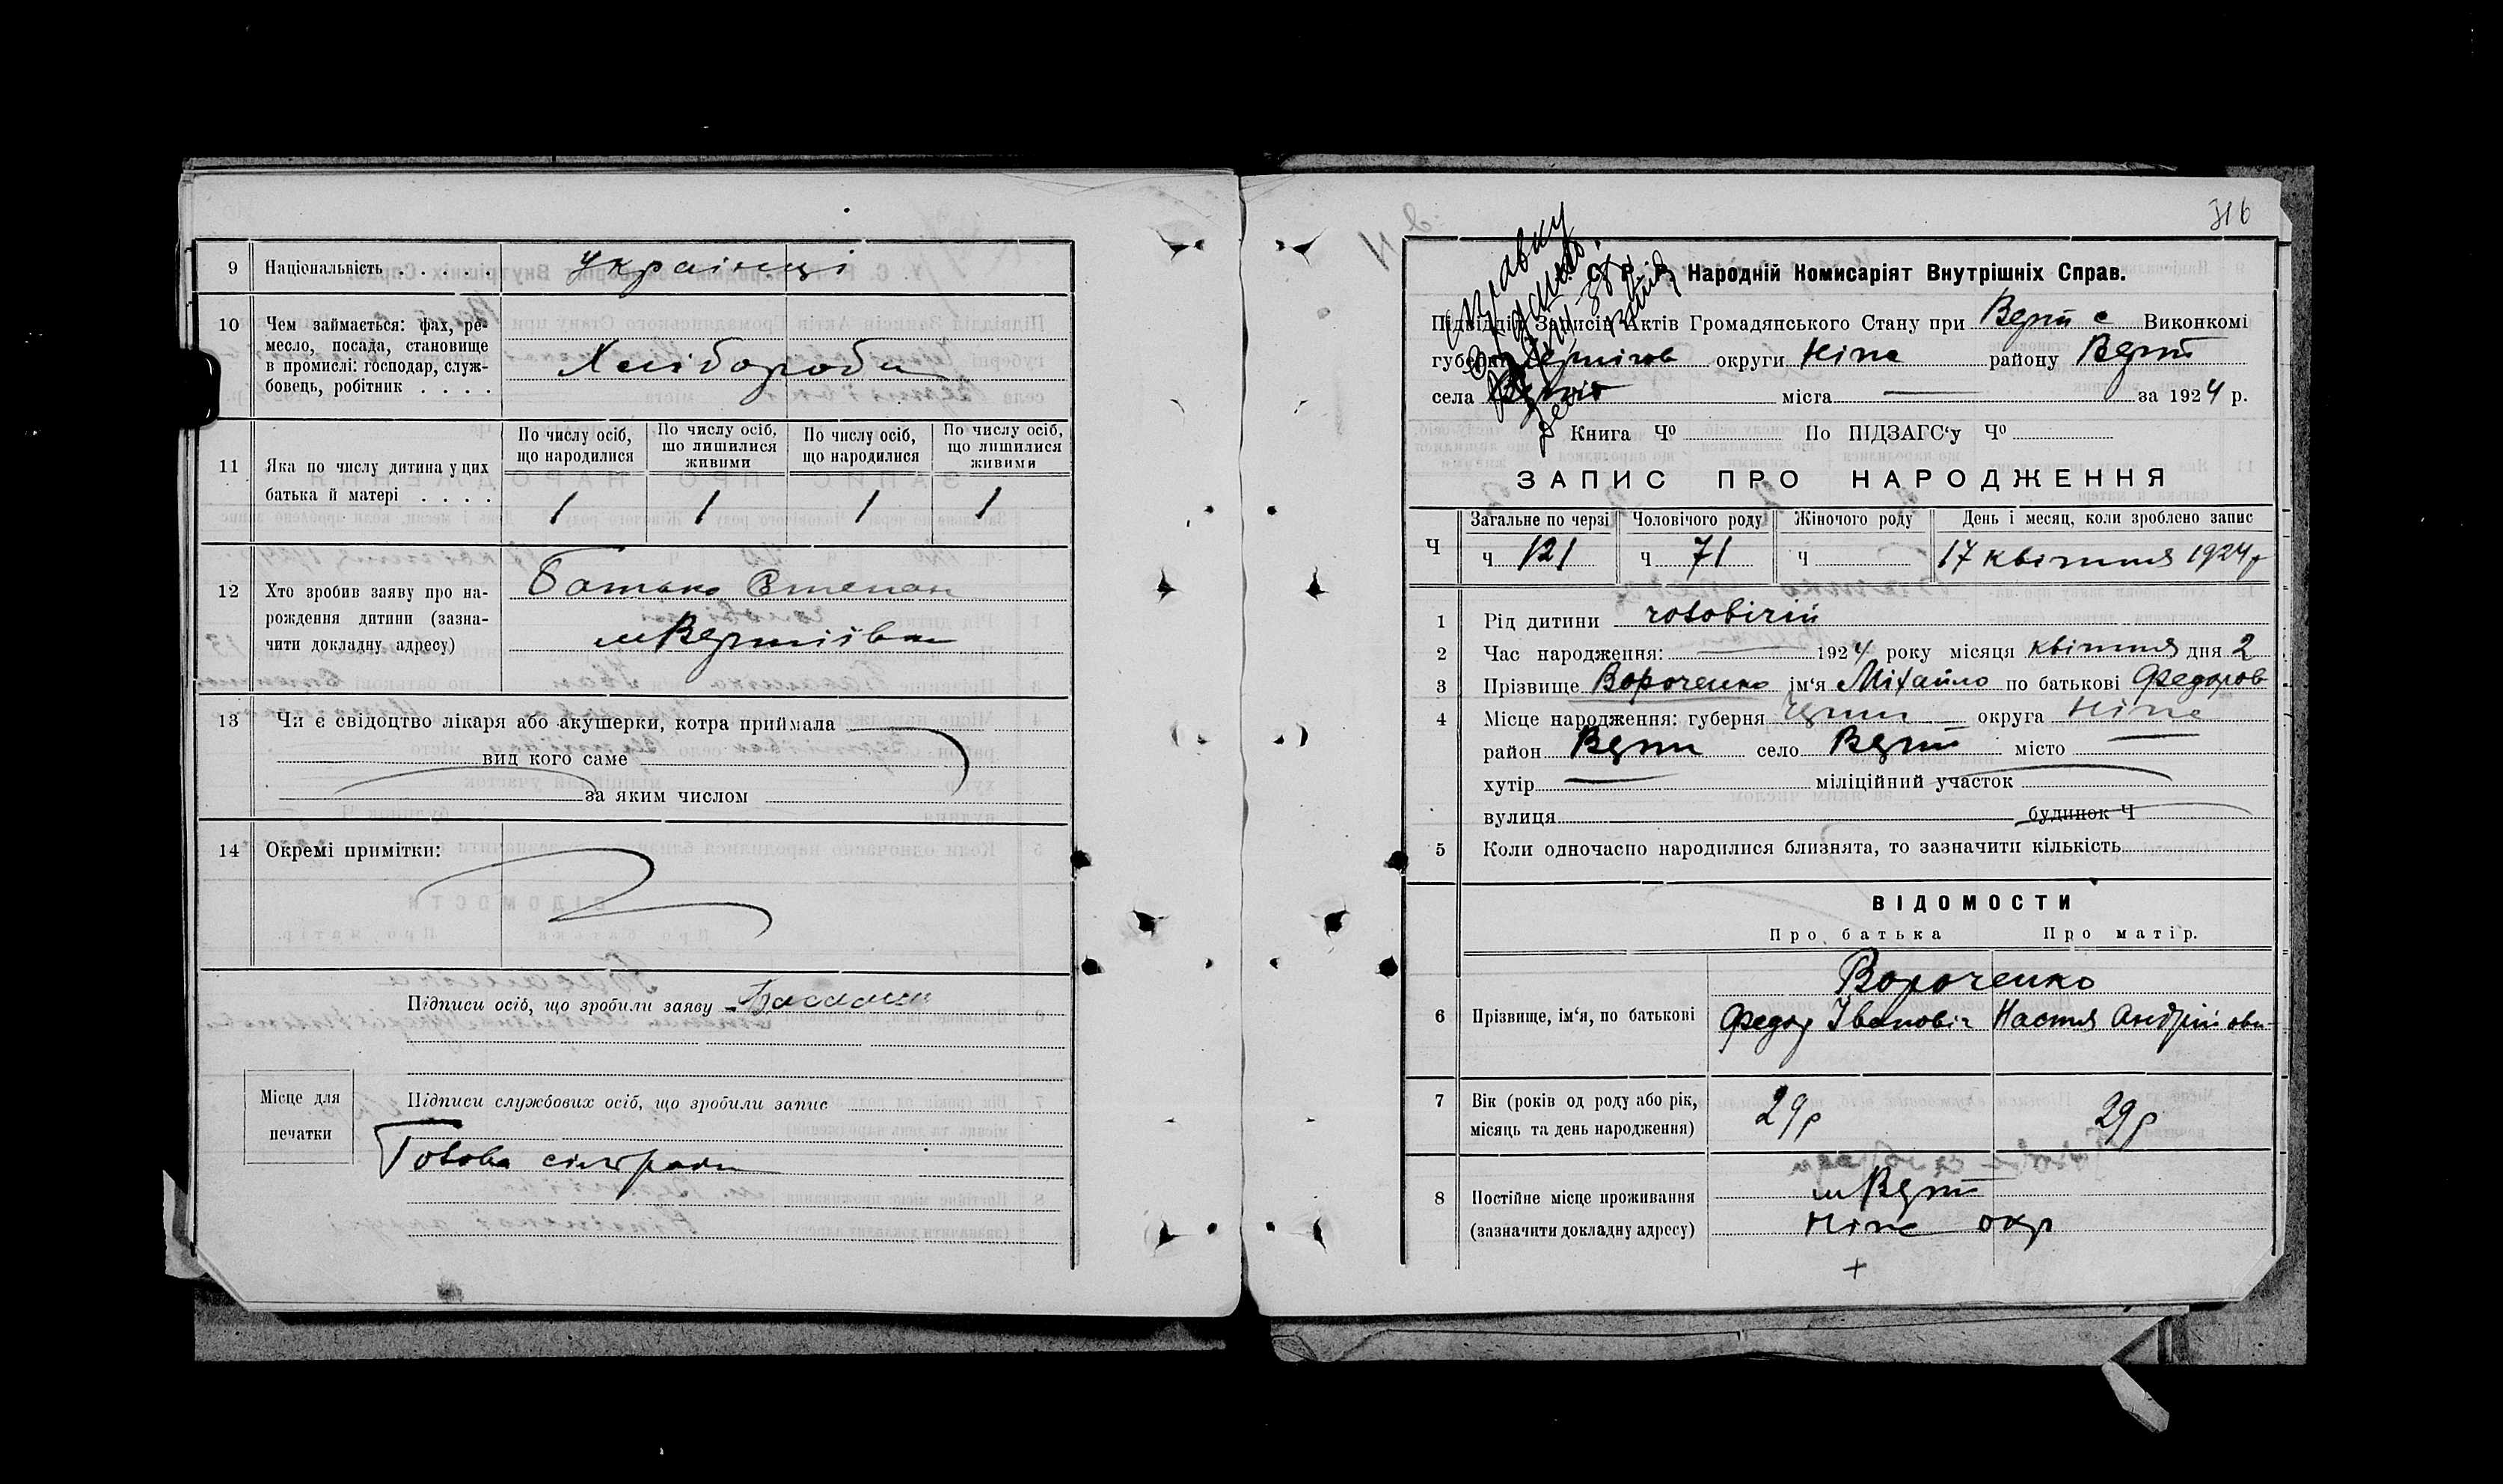 9 Національність . . . . . Українці
10 Чем займається: фах, ре-
месло, посада, становище
в промислі: господар, служ-
бовець, робітник . . . .
Хлібороби
11 Яка по числу дитина у цих
батька й матері . . . .
По числу осіб, що народилися
По числу осіб, що лишилися живими
По числу осіб, що народилися
По числу осіб, що лишилися живими
1 1 1 1
12 Хто зробив заяву про на-
рождення дитини (зазна-
чити докладну адресу)
Батько Степан
м Вертіївки
13 Чи є свідоцтво лікаря або акушерки, котра приймала
вид кого саме
за яким числом
14 Окремі примітки:
Підписи осіб, що зробили заяву
Місце для
печатки
Підписи службових осіб, що зробили запис
Голова сільради
316
С. Р. Р. Народній Комисаріят Внутрішніх Справ.
Підвідділ Записів Актів Громадянського Стану при Верт с Виконкомі
губерні Чернігов округи Ніже району Верт
села міста за 1924 р.
Книга Чо По ПІДЗАГС'у Чо
ЗАПИС ПРО НАРОДЖЕННЯ
Ч
Загальне по черзі Чоловічого роду Жіночого роду День і месяц, коли зроблено запис
ч 121 ч 71 ч 17 квітня 1924 р
1 Рід дитини чоловічий
2 Час народження: 1924 року місяця квітня дня 2
3 Прізвище Вороченко ім'я Міхайло по батькові Федоров
4 Місце народження: губерня Черниг округа Ніже
район Верт село Верт місто
хутір міліційний участок
вулиця будинок Ч
5 Коли одночасно народилися близнята, то зазначити кількість
ВІДОМОСТИ
Про батька Про матір.
6 Прізвище, ім'я, по батькові
Вороченко
Федор Іванович Настя Андрійовн
7 Вік (років од роду або рік,
місяць та день народження)
29р 29р
8 Постійне місце проживання
(зазначити докладну адресу)
м Верт
Ніже окр
+